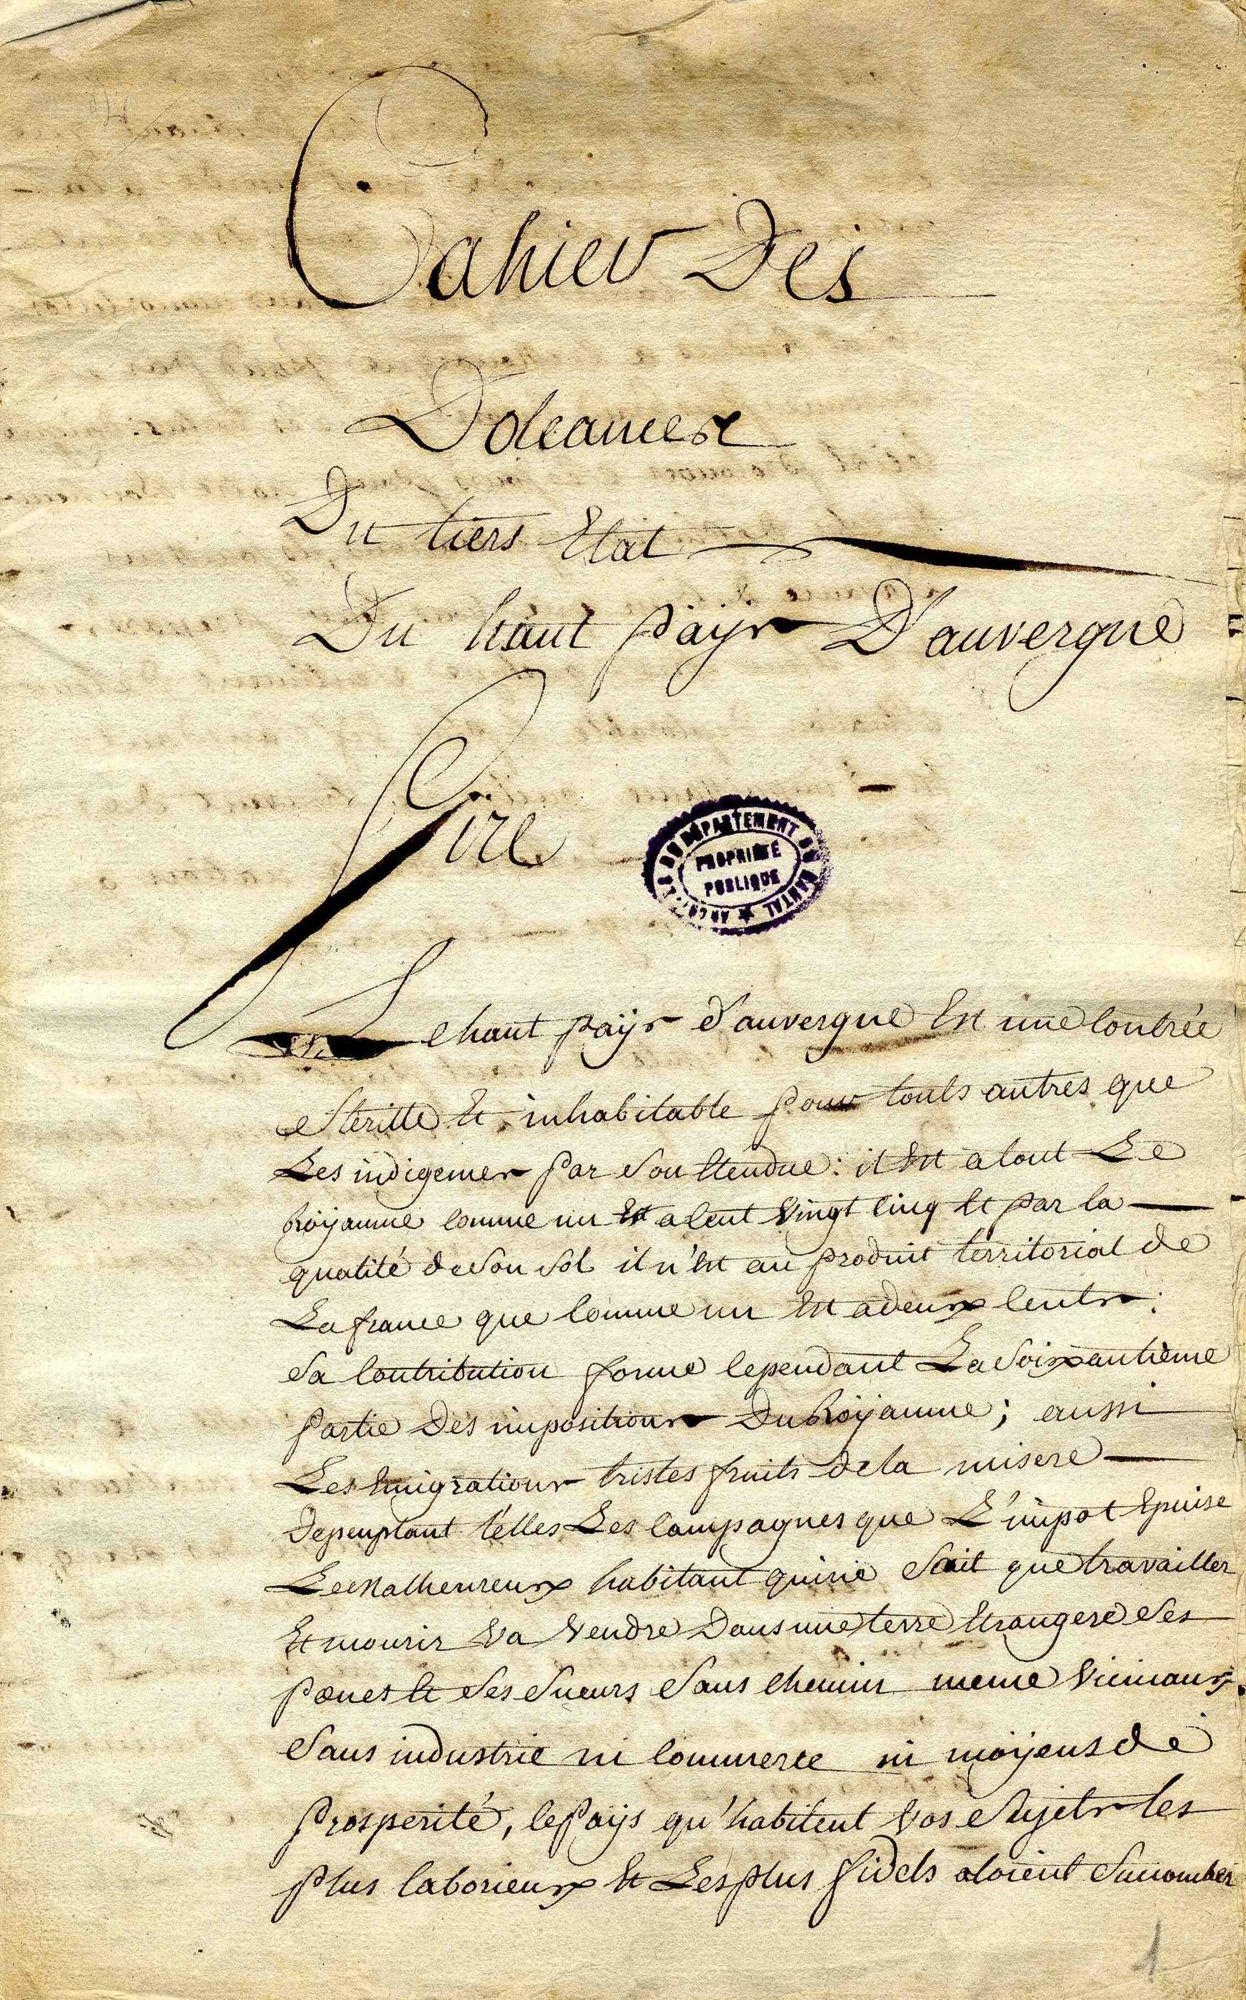 Cahier Des
Doleances
Du tiers Etat
Du haut païs D'auvergne
Sire
ARCHIVES DU DÉPARTEMENT DU CANTAL
PROPRIÉTÉ
PUBLIQUE
Le haut païs d'auvergne Est une Contrée
Sterille Et inhabitable pour touts autres que
Les indigenes par son Etendue : il Est a tout Le
Royaume comme un Est a cent vingt cinq Et par la
qualité de son sol il n'Est au produit territorial de
La france que comme un Est a deux cents :
Sa Contribution forme cependant La Soixantième
partie Des impositions Du Royaume ; aussi
Les Emigrations tristes fruits de la misere
Depeuplant t'elles Les campagnes que L'impot Epuise
Le Malheureux habitant qui ne sait que travailler
Et mourir va vendre Dans une terre Etrangere Ses
paines Et Ses sueurs Sans chemin meme vicinaux
Sans industrie ni commerce ni moÿens de
prosperité, le païs qu'habitent vos Sujets les
plus laborieux Et Les plus fidels aloient Succomber
1